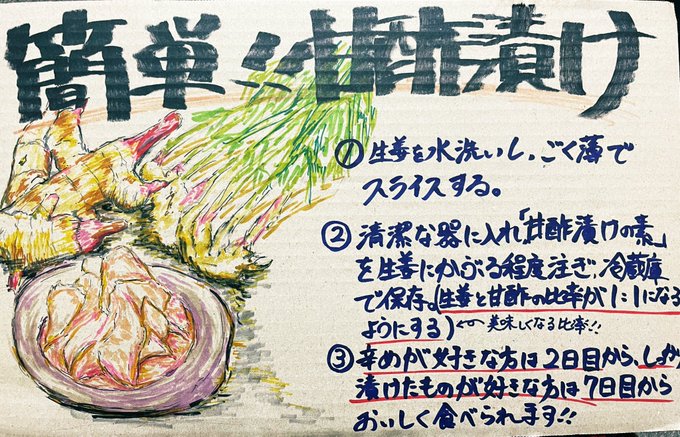 簡単!甘酢漬け
①生姜を水洗いし、ごく薄で
スライスする。
②清潔な器に入れ「甘酢漬けの素」
を生姜にかぶる程度注ぎ、冷蔵庫
で保存。(生姜と甘酢の比率が1:1になる
ようにする)←美味しくなる比率!!
③辛めが好きな方は2日目から、しっかり
漬けたものが好きな方は7日目から
おいしく食べられます!!